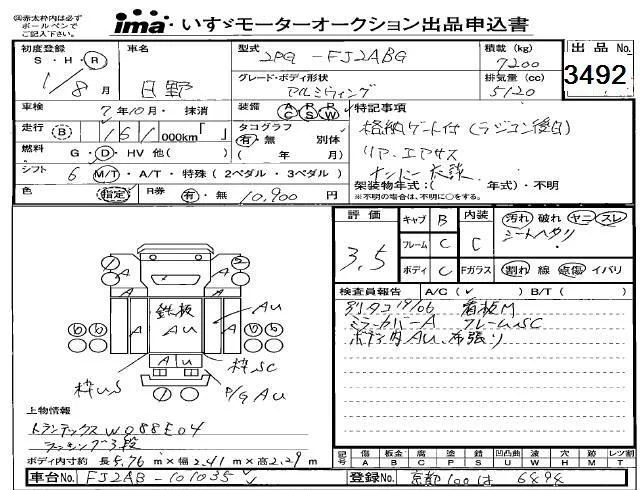 ㊟赤太枠内は必ず
ボールペンで
ご記入下さい。
ima・いすゞモーターオークション出品申込書
初度登録
S・H・R
1/8月
車名
日野
型式
2PG-FJ2ABG
積載(kg)
7200
出品No.
3492
グレード・ボディ形状
アルミウィング
排気量(cc)
5120
車検 7年10月・抹消
装備 AC PS PW
特記事項
走行 B 161,000km「 」
タコグラフ
有・無 別体
( 年 月)
格納ゲート付(ラジコン後日)
リア、エアサス
ナンバー
燃料 G・D・HV 他( )
シフト 6 M/T・A/T・特殊(2ペダル・3ペダル)
架装物年式:( 年式)・不明
※不明の場合は、不明に○をする。
色 指定 R券 有・無 10,900円
評価
3.5
キャブ B
フレーム C
ボディ C
内装
C
Fガラス
汚れ 破れ ヤニ スレ
シートヘタリ
割れ 線 点傷 イバリ
検査員報告 A/C(✓) B/T( )
別タコ19/06 看板M
ミラーカバーA フレームSC
ボディ内AU、布張り
A A
A A
鉄板
AU
A A
AU
A U
枠US
枠SC
P/G AU
上物情報
トランテックス W088E04
ラッシング3段
ボディ内寸約 長5.76m×幅2.41m×高2.29m
記号
傷 A
板金 B
腐 C
塗 P
錆 S
凹凸曲 U
波 W
穴 H
跡 M
レツ割 T
車台No. FJ2AB-101035
登録No. 京都100は 6494